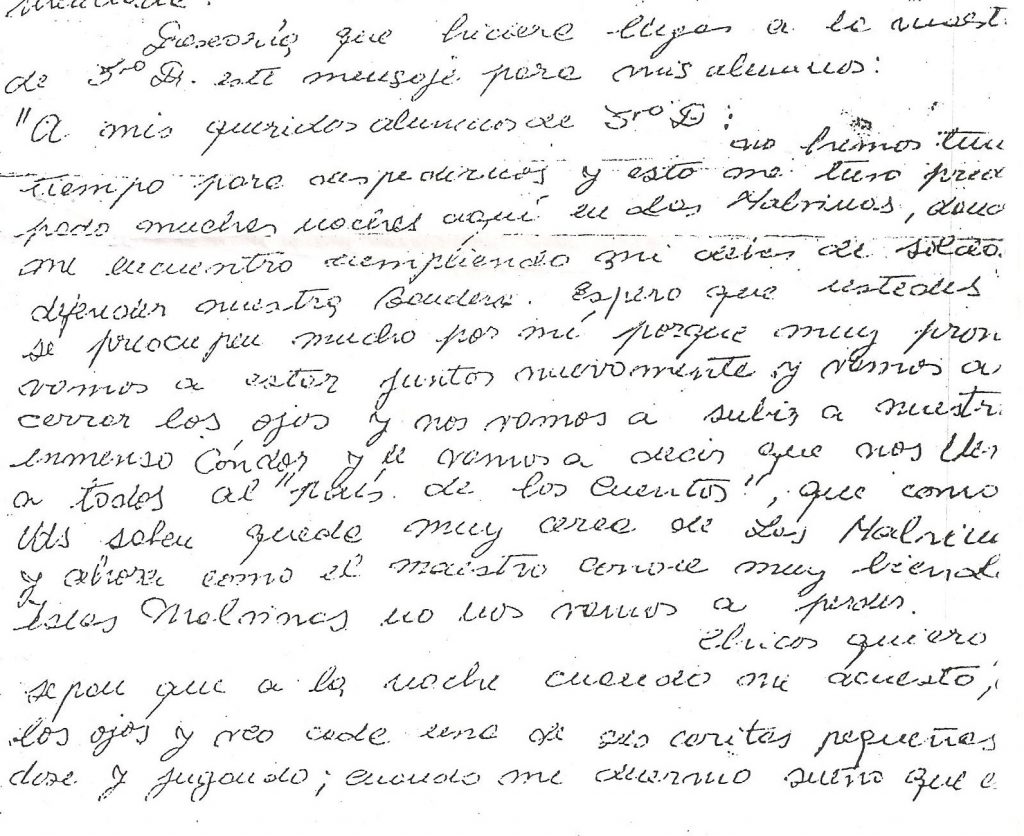 Desearía que hiciera llegar a la maest
de 3ro D. este mensaje para mis alumnos:
"A mis queridos alumnos de 3ro D:
no hemos teni
tiempo para despedirnos y esto me tuvo preo
pado muchas noches aquí en Las Malvinas, dond
me encuentro cumpliendo mi deber de soldado
defender nuestra bandera. Espero que ustedes
se preocupen mucho por mí porque muy pron
vamos a estar juntos nuevamente y vamos a
cerrar los ojos y nos vamos a subir a nuestr
inmenso Cóndor y le vamos a decir que nos lle
a todos al "país de los cuentos", que como
Uds saben queda muy cerca de Las Malvin
y ahora como el maestro conoce muy bien
Islas Malvinas no nos vamos a perder.
Chicos quiero
sepan que a la noche cuando me acuesto,
los ojos y veo cada una de sus caritas pequeñas
dose y jugando; cuando me duermo sueño que e